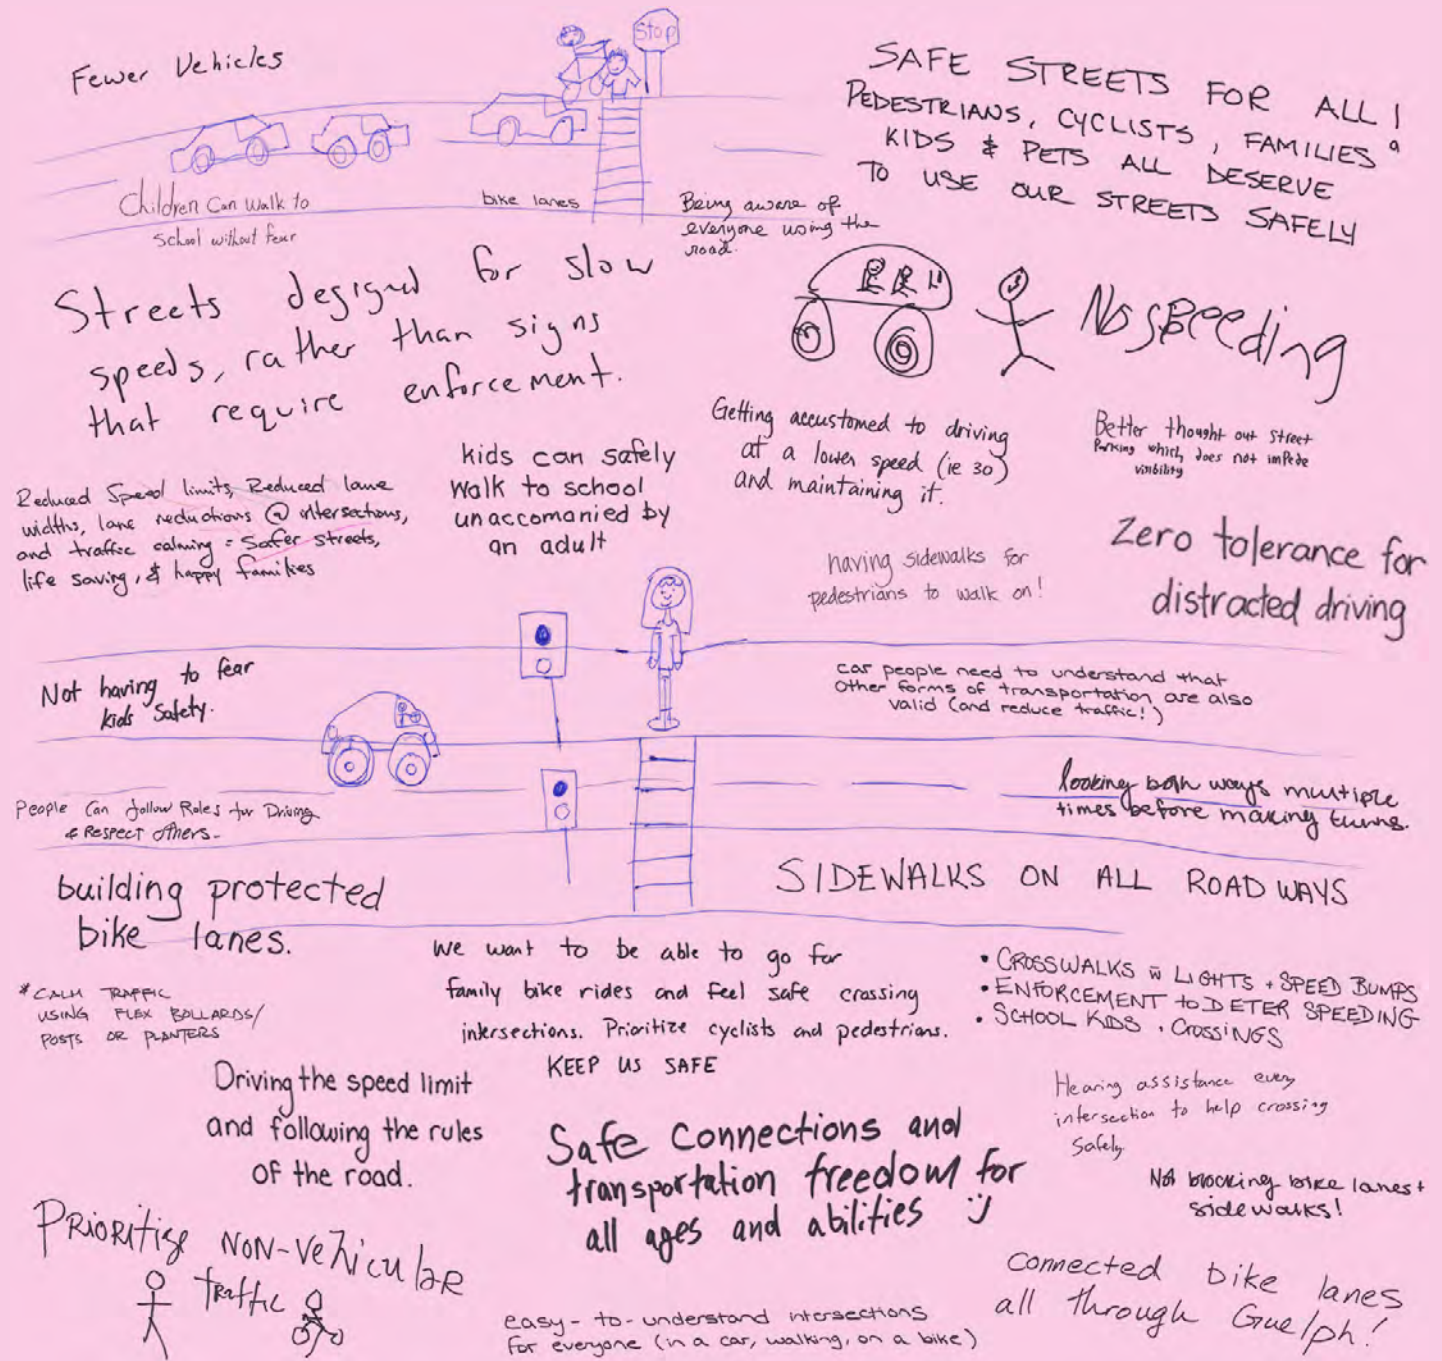 Fewer Vehicles
Stop
SAFE STREETS FOR ALL!
PEDESTRIANS, CYCLISTS, FAMILIES,
KIDS & PETS ALL DESERVE
TO USE OUR STREETS SAFELY
Children Can Walk to
school without fear
bike lanes
Being aware of
everyone using the
road.
Streets designed for slow
speeds, rather than signs
that require enforcement.
No speeding
Getting accustomed to driving
at a lower speed (ie 30)
and maintaining it.
Better thought out street
Parking which does not impede
visibility
Reduced Speed limits, Reduced lane
widths, lane reductions @ intersections,
and traffic calming = Safer streets,
life saving, & happy families
kids can safely
Walk to school
unaccomanied by
an adult
having sidewalks for
pedestrians to walk on!
Zero tolerance for
distracted driving
Not having to fear
kids safety.
car people need to understand that
other forms of transportation are also
valid (and reduce traffic!)
People Can follow Roles for Driving
& Respect others-
looking both ways multiple
times before making turns.
building protected
bike lanes.
SIDEWALKS ON ALL ROADWAYS
*CALM TRAFFIC
USING FLEX BOLLARDS/
POSTS OR PLANTERS
We want to be able to go for
family bike rides and feel safe crossing
intersections. Prioritize cyclists and pedestrians.
KEEP US SAFE
• CROSSWALKS w LIGHTS + SPEED BUMPS
• ENFORCEMENT to DETER SPEEDING
• SCHOOL KIDS . CROSSINGS
Driving the speed limit
and following the rules
of the road.
Hearing assistance every
intersection to help crossing
Safely
Safe Connections and
transportation freedom for
all ages and abilities :)
Not blocking bike lanes +
sidewalks!
PRIORITIZE NON-Vehicular
Traffic
easy-to-understand intersections
for everyone (in a car, walking, on a bike)
Connected bike lanes
all through Guelph!